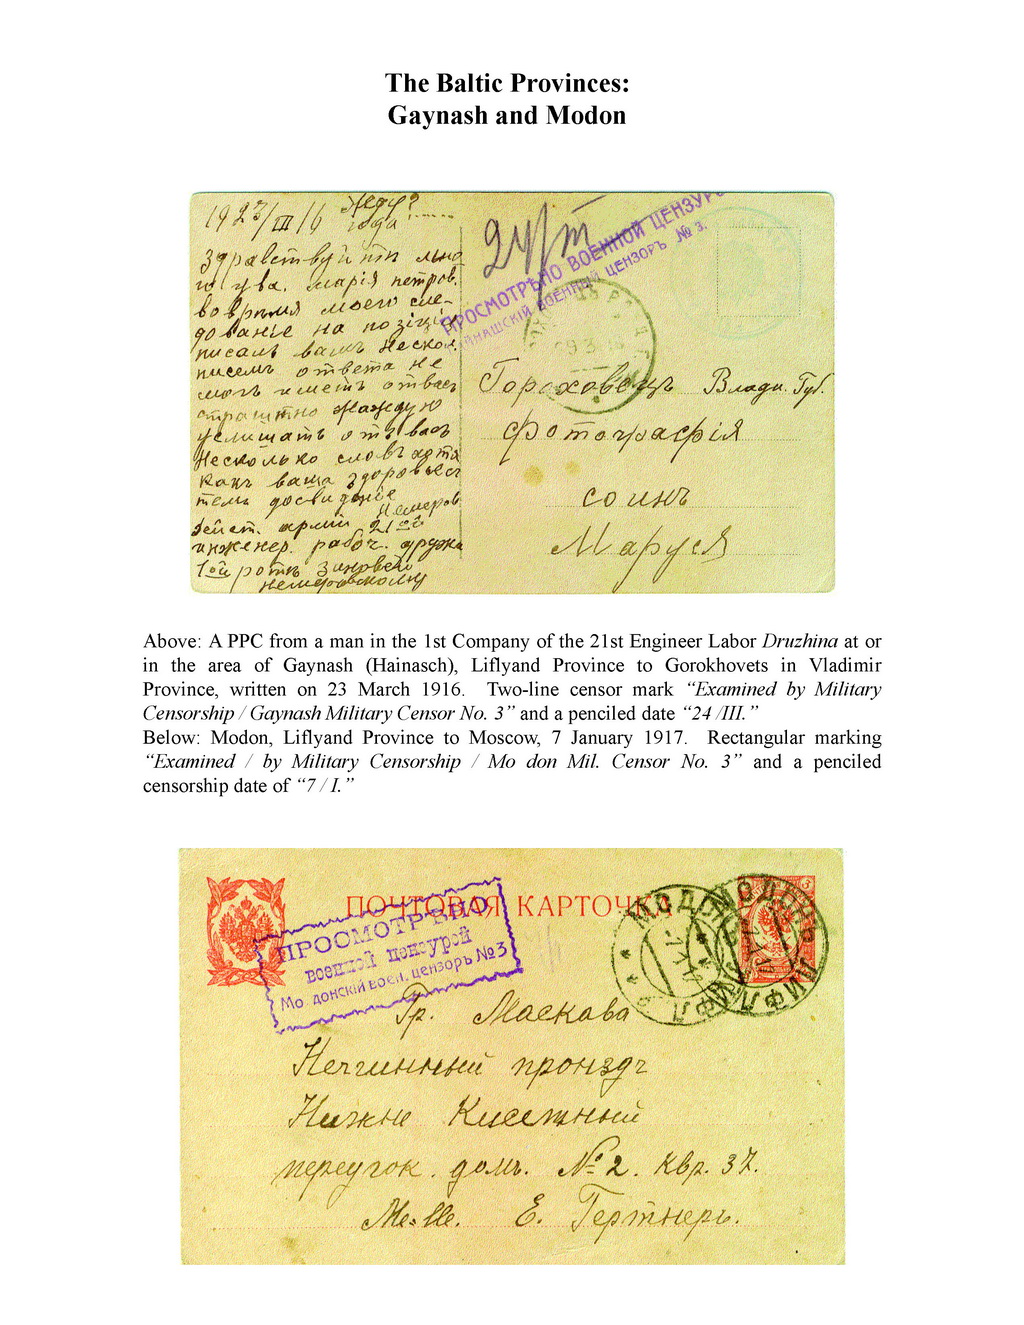 The Baltic Provinces:
Gaynash and Modon
1923/III 16 года
Здравствуй
марія петров.
во время моего сле-
дованіе на позіціи
писалъ вамъ Нескол.
писемъ отвѣта не
могъ иметь отвас
страштно жажду
услишать отъ вас
Несколько словъ
Какъ ваша здоровье
досвиданіе
Дейст. армии 21ой
инженер. рабоч. дружи
1ой роты
24/III
ПРОСМОТРѢНО ВОЕННОЙ ЦЕНЗУРО
АЙНАШСКІЙ ВОЕННЫЙ ЦЕНЗОРЪ № 3.
Гороховецъ Влади. Губ.
фотографія
Маруся
Above: A PPC from a man in the 1st Company of the 21st Engineer Labor Druzhina at or
in the area of Gaynash (Hainasch), Liflyand Province to Gorokhovets in Vladimir
Province, written on 23 March 1916. Two-line censor mark “Examined by Military
Censorship / Gaynash Military Censor No. 3” and a penciled date “24 /III.”
Below: Modon, Liflyand Province to Moscow, 7 January 1917. Rectangular marking
“Examined / by Military Censorship / Mo don Mil. Censor No. 3” and a penciled
censorship date of “7 / I.”
ПОЧТОВАЯ КАРТОЧКА
ПРОСМОТРѢНО
военной цензурой
Мо донскій воен. цензоръ №3
МОДОНЪ ЛИФЛ
Гр. Маскава
произд
Нижне Кисельний
переулок. домъ. № 2. квр. 37.
Е. Гертнеръ.